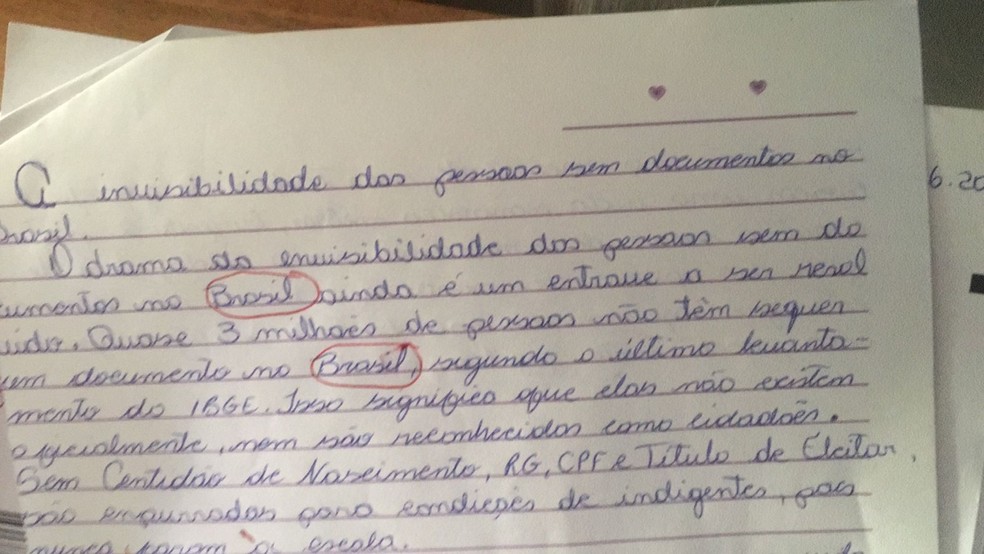 A invisibilidade das pessoas sem documentos no
Brasil.
O drama da envisibilidade das pessoas sem do
cumentos no Brasil ainda é um entrave a ser resol
vido. Quase 3 milhões de pessoas não têm sequer
um documento no Brasil, segundo o último levanta-
mento do IBGE. Isso significa que elas não existem
oficialmente, nem são reconhecidos como cidadões.
Sem Centidão de Nascimento, RG, CPF e Título de Eleitor,
são empurradas para condições de indigentes, pois
nunca foram a escola.
6.20